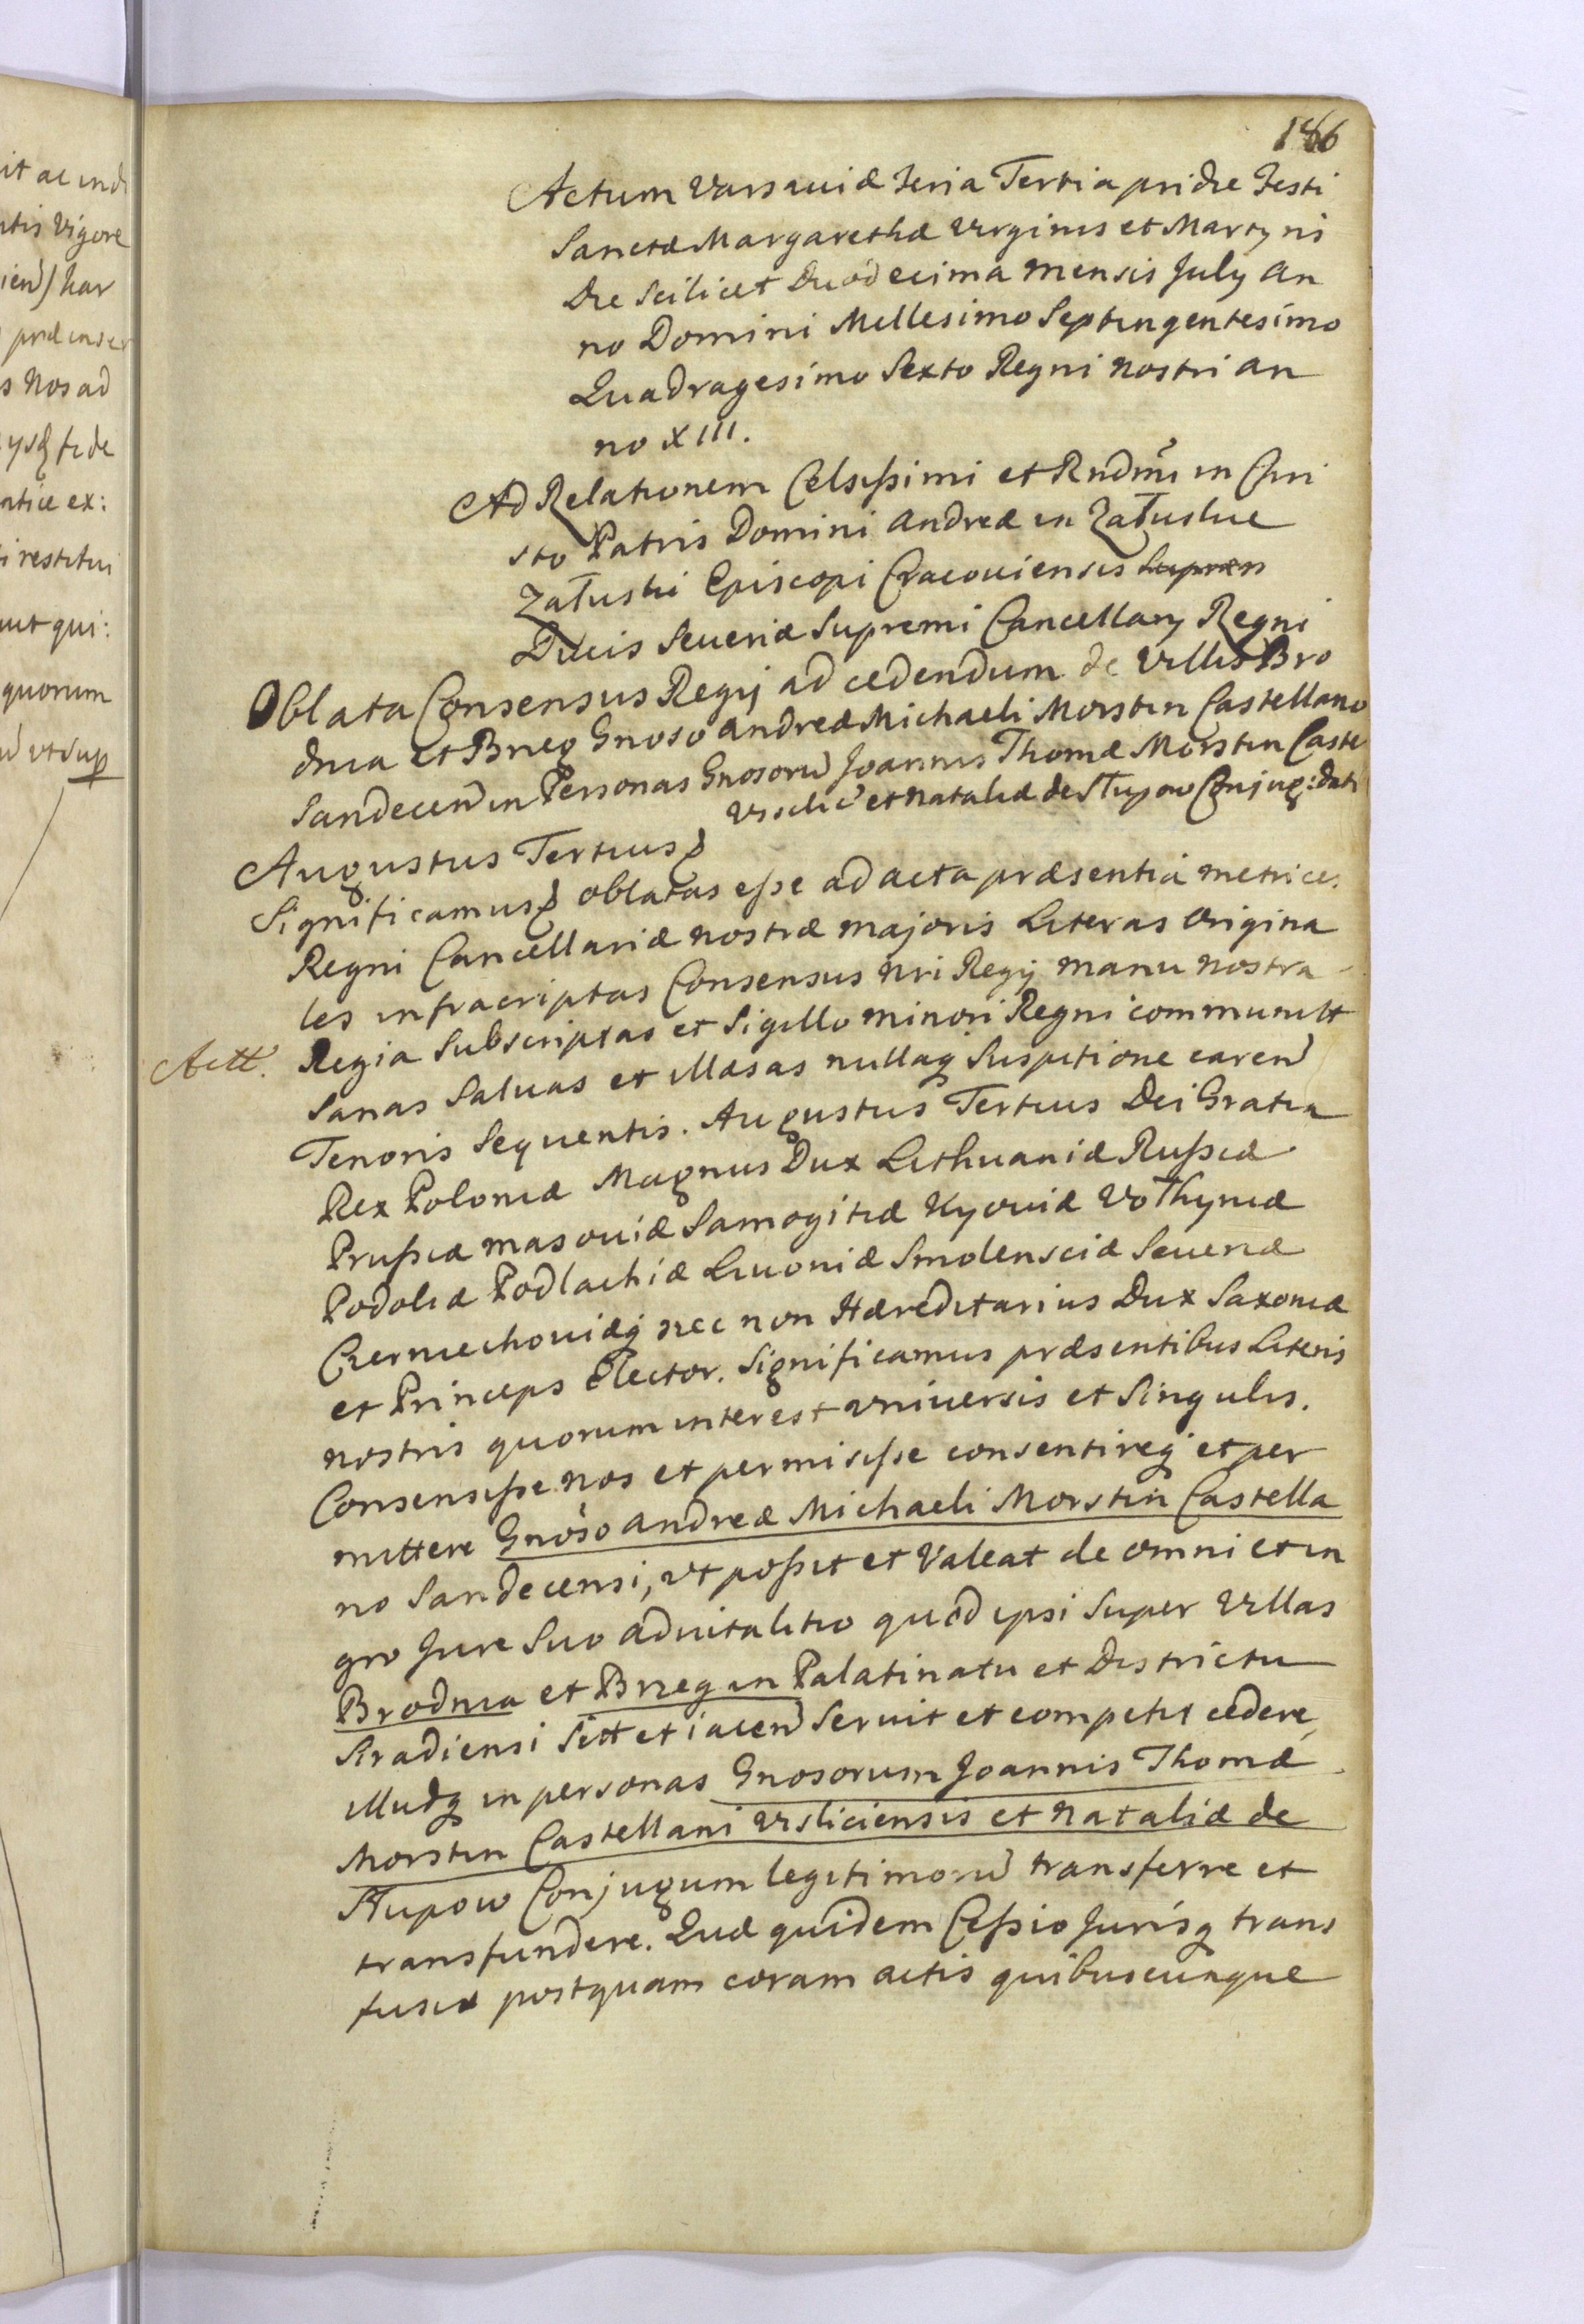 186
Actum Varsaviæ Feria Tertia pridie Festi
Sanctæ Margarethæ Virginis et Martyris
Die Scilicet Duodecima mensis July An
no Domini Millesimo Septingentesimo
Quadragesimo Sexto Regni nostri an
no XIII.
Ad Relationem Celsissimi et Rndmi in Chri
sto Patris Domini Andreæ in Załuskie
Załuski Episcopi Cracoviensis Supren
Ducis Severiæ Supremi Cancellarij Regni
Oblata Consensus Regij ad cedendum de Villis Bro
dnia et Brzeg Gnoso Andreæ Michaeli Morstin Castellano
Sandecen in Personas Gnosorum Joannis Thomæ Morstin Caste
Vislic et Nataliæ de Słupow Conjug: dati
Augustus Tertius
Significamus oblatas esse ad acta præsentia metrices
Regni Cancellariæ nostræ majoris Literas Origina
les infrascriptas Consensus Nri Regij manu nostra
Regia Subscriptas et Sigillo minori Regni communitt
Actt.
Sanas Salvas et illæsas nullaq suspitione caren
Tenoris Sequentis. Augustus Tertius Dei Gratia
Rex Poloniæ Magnus Dux Lithuaniæ Russiæ
Prussiæ Masoviæ Samogitiæ Kyoviæ Volhyniæ
Podoliæ Podlachiæ Livoniæ Smolensciæ Severiæ
Czerniechoviæq nec non Hæreditarius Dux Saxoniæ
et Princeps Elector. Significamus præsentibus Literis
nostris quorum interest Universis et Singulis.
Consensisse nos et permisisse consentireq et per
mittere Gnoso Andreæ Michaeli Morstin Castella
no Sandecensi, ut possit et Valeat de omni et in
gro Jure Suo advitalitio quod ipsi Super Villas
Brodnia et Brzeg in Palatinatu et Districtu
Siradiensi Sitt et iacen servit et competit cedere,
illudq in personas Gnosorum Joannis Thomæ
Morstin Castellani Visliciensis et Nataliæ de
Słupow Conjugum legitimorum transferre et
transfundere. Quæ quidem Cessio Jurisq trans
fusio postquam coram actis quibuscunque
it ac ind
ntis Vigore
ien) har
s Nos ad
fide
ntice ex:
i restitui
unt qui:
quorum
ut sup